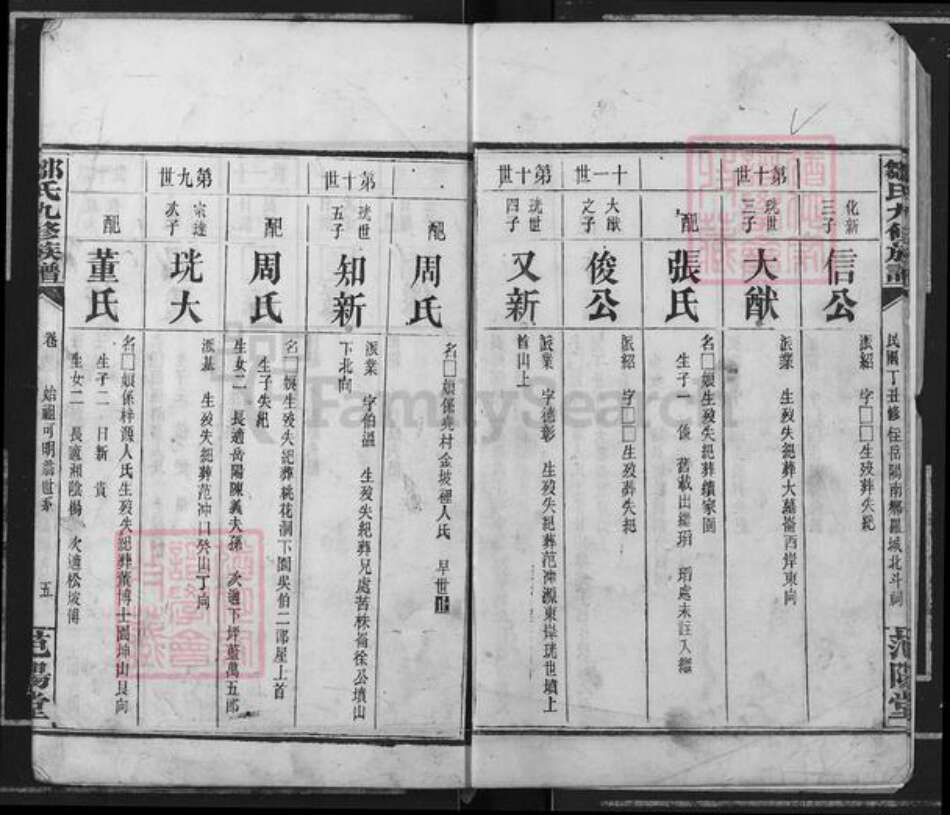 鄒氏九修族譜
民國丁丑修 住岳陽南鄉羅城北斗祠
范陽堂
化新三子
信公
派紹 字□□生歿葬失紀
第十世
珖世三子
大猷
派業 生歿失紀葬大墓崙西岸東向
配
張氏
名□娘生歿失紀葬續家園
生子一 俊 舊載出繼 瑫處未註入繼
十一世
大猷之子
俊公
派紹 字□□生歿葬失紀
第十世
珖世四子
又新
派業 字德彰 生歿失紀葬范沖源東岸珖世墳上
首山上
配
周氏
名□娘係堯村金坡裡人氏 早世
第十世
珖世五子
知新
派業 字伯溫 生歿失紀葬兄處苦株崙徐公墳山
下北向
配
周氏
名□娘生歿失紀葬桃花洞下園吳伯二郎屋上首
生子失紀
生女二 長適岳陽陳義夫孫 次適下坪藍萬五郎
第九世
宗達次子
珖大
派基 生歿失紀葬范沖口癸山丁向
配
董氏
名□娘係梓源人氏生歿失紀葬黃博士園坤山艮向
生子二 日新 貴
生女二 長適湘陰楊 次適松坡傅
鄒氏九修族譜
卷 始祖可明翁世系 五
范陽堂
FamilySearch